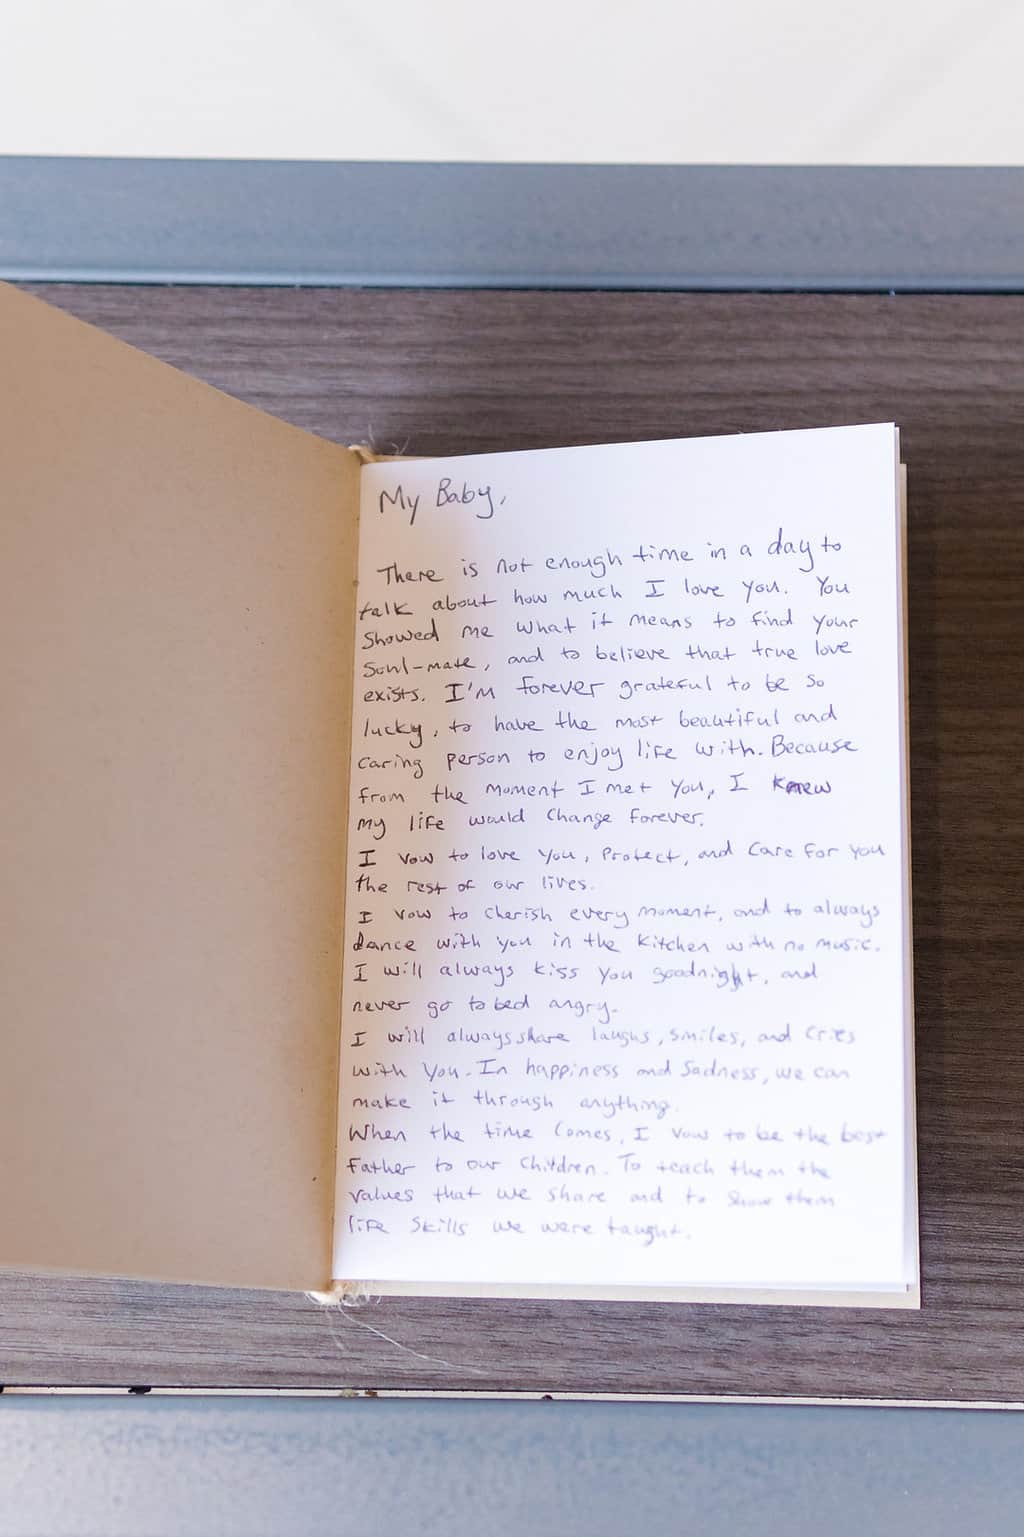 My Baby,
There is not enough time in a day to
talk about how much I love you. You
Showed me what it means to find your
Soul-mate, and to believe that true love
exists. I'm forever grateful to be so
lucky, to have the most beautiful and
caring person to enjoy life with. Because
from the moment I met you, I knew
my life would change forever.
I vow to love you, protect, and care for you
the rest of our lives.
I vow to cherish every moment, and to always
dance with you in the kitchen with no music.
I will always kiss you goodnight, and
never go to bed angry.
I will always share laughs, smiles, and cries
with you. In happiness and sadness, we can
make it through anything.
When the time comes, I vow to be the best
father to our children. To teach them the
values that we share and to show them
life skills we were taught.